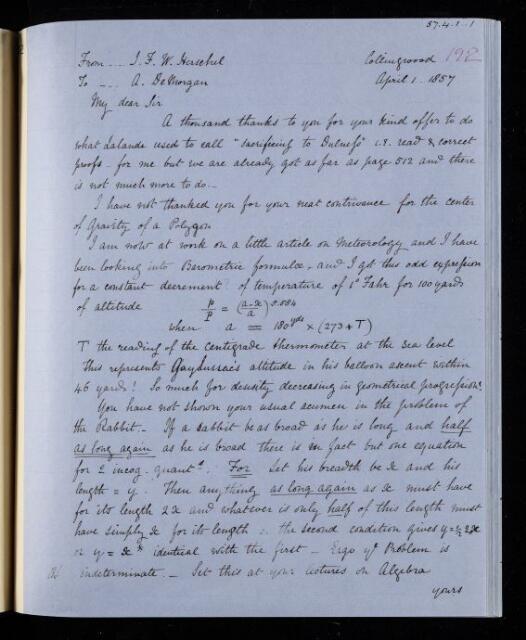 57.4.1.1
From --- J. F. W. Herschel Collingwood 192
To --- A. DeMorgan April 1 - 1857
My dear Sir
A thousand thanks to you for your kind offer to do
what Lalande used to call "sacrificing to Dulness" i.e. read & correct
proofs - for me but we are already got as far as page 512 and there
is not much more to do. -
I have not thanked you for your neat contrivance for the center
of Gravity of a Polygon
I am now at work on a little article on Meteorology and I have
been looking into Barometric formulæ, and I get this odd expression
for a constant decrement of temperature of 1° Fahr for 100 yards
of altitude p/P = (a-x/a)^5.884
when a = 180 yds × (273 + T)
T the reading of the centigrade thermometer at the sea level
This represents Gaylussac's altitude in his balloon ascent within
46 yards! So much for density decreasing in geometrical progression!
You have not shown your usual acumen in the problem of
the Rabbit - If a rabbit be as broad as he is long and half
as long again as he is broad there is in fact but one equation
for 2 incog. quant^s. For Let his breadth be x and his
length = y. Then anything as long again as x must have
for its length 2x and whatever is only half of this length must
have simply x for its length ∴ the second condition gives y = ½ 2x
or y = x identical with the first - Ergo y^r Problem is
indeterminate. - Set this at your lectures on Algebra
yours